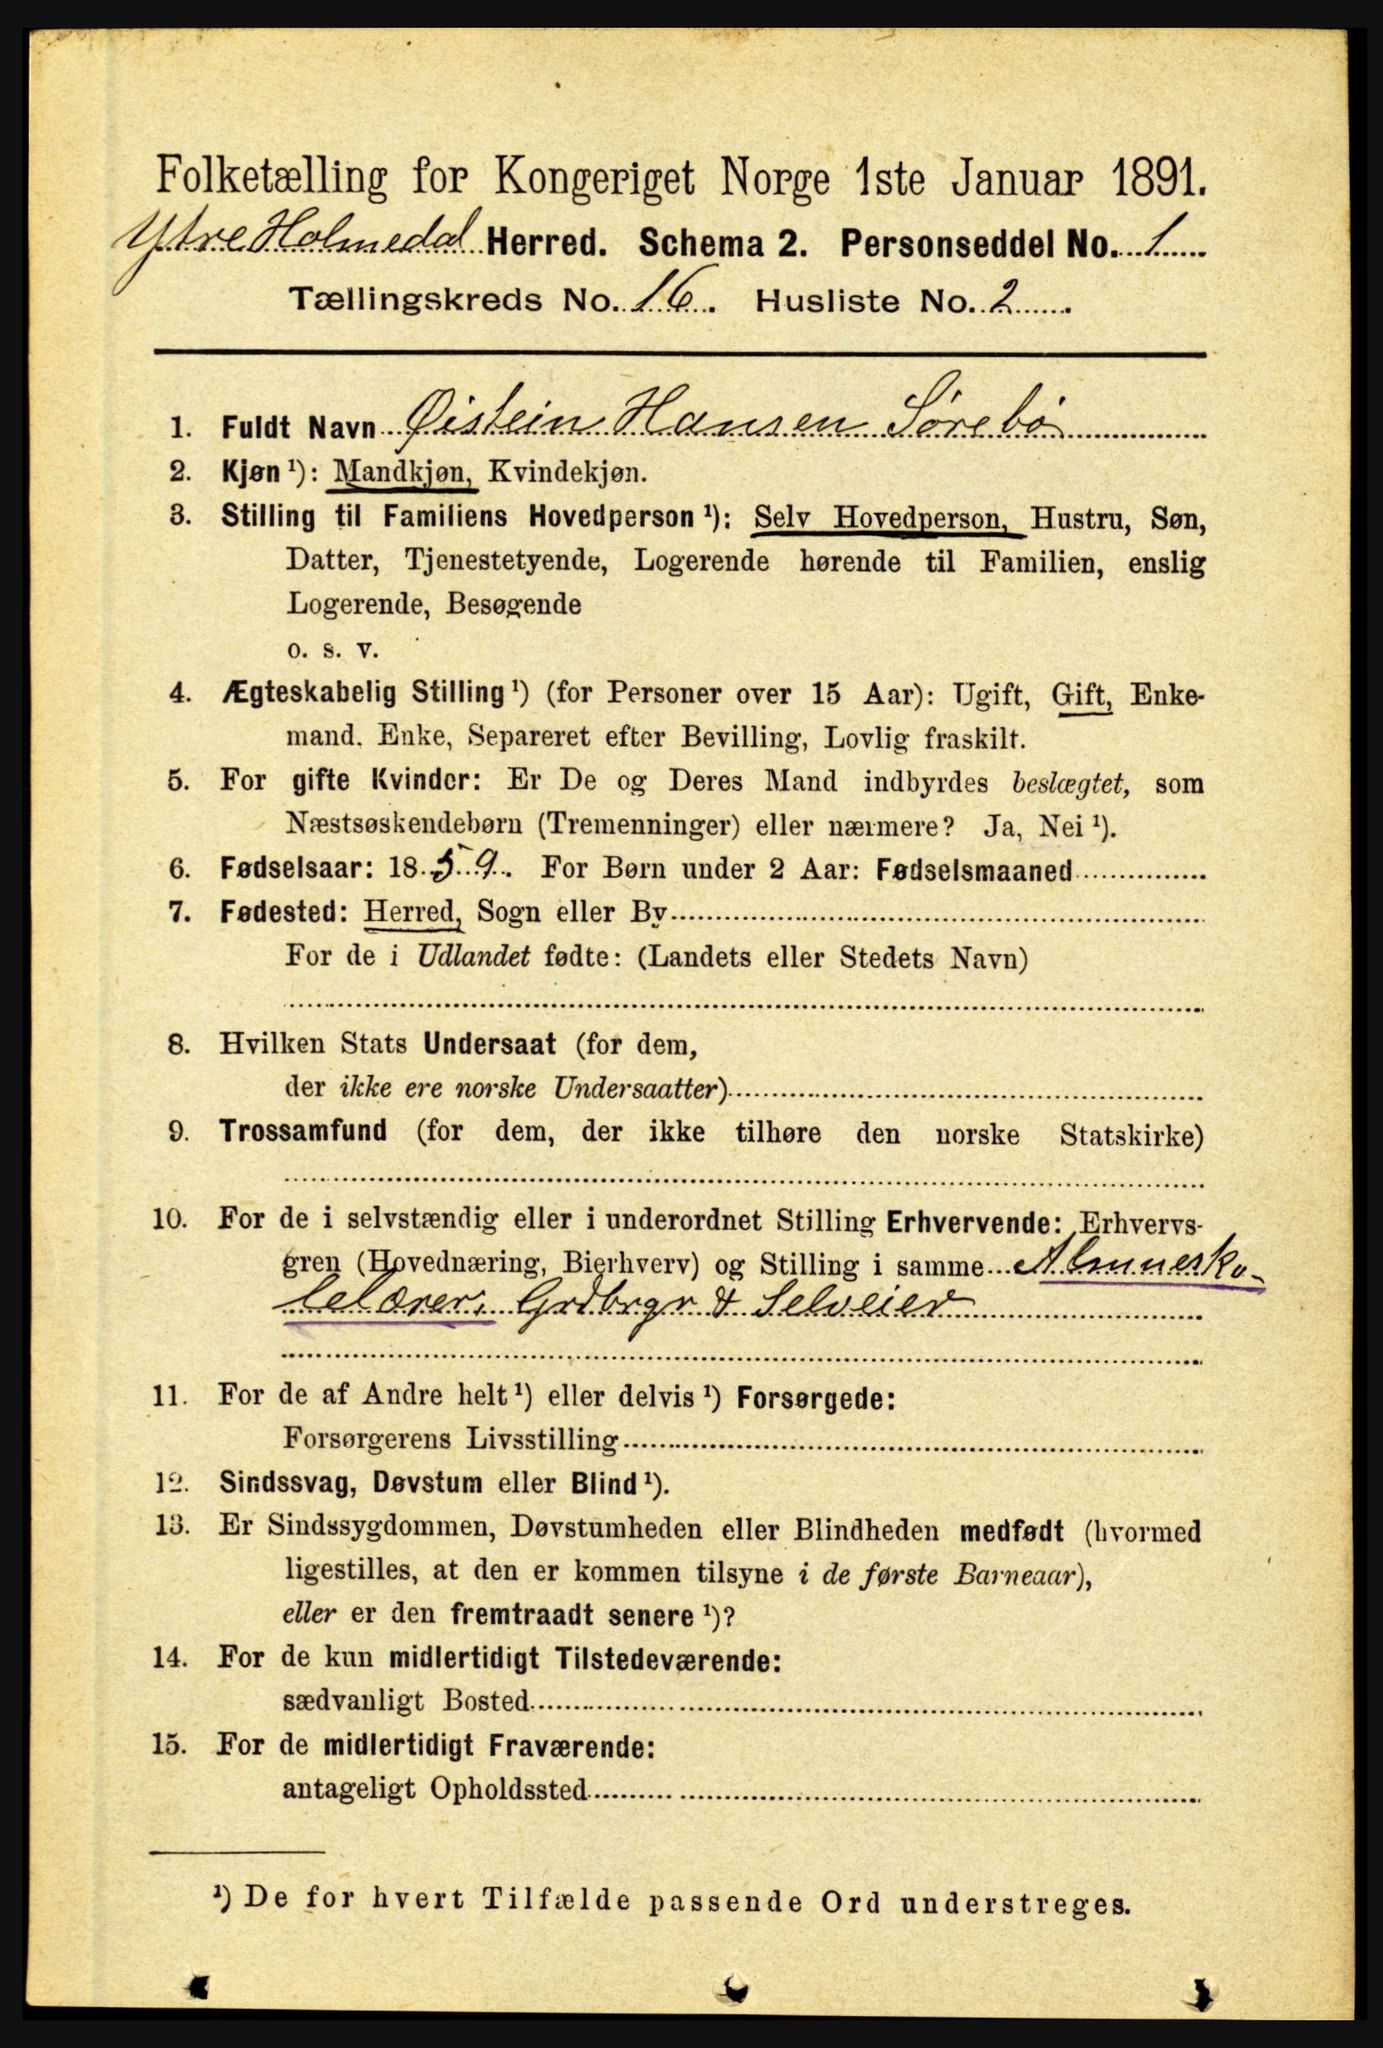 Folketælling for Kongeriget Norge 1ste Januar 1891.
Ytre Holmedal Herred. Schema 2. Personseddel No. 1
Tællingskreds No. 16. Husliste No. 2
1. Fuldt Navn Øistein Hansen Sörebö
2. Kjøn ¹): Mandkjøn, Kvindekjøn.
3. Stilling til Familiens Hovedperson ¹): Selv Hovedperson, Hustru, Søn,
Datter, Tjenestetyende, Logerende hørende til Familien, enslig
Logerende, Besøgende
o. s. v.
4. Ægteskabelig Stilling ¹) (for Personer over 15 Aar): Ugift, Gift, Enke-
mand, Enke, Separeret efter Bevilling, Lovlig fraskilt.
5. For gifte Kvinder: Er De og Deres Mand indbyrdes beslægtet, som
Næstsøskendebørn (Tremenninger) eller nærmere? Ja, Nei ¹).
6. Fødselsaar: 1859. For Børn under 2 Aar: Fødselsmaaned
7. Fødested: Herred, Sogn eller By
For de i Udlandet fødte: (Landets eller Stedets Navn)
8. Hvilken Stats Undersaat (for dem,
der ikke ere norske Undersaatter)
9. Trossamfund (for dem, der ikke tilhøre den norske Statskirke)
10. For de i selvstændig eller i underordnet Stilling Erhvervende: Erhvervs-
gren (Hovednæring, Bierhverv) og Stilling i samme Almuesko-
lelærer, Grdbrgr & Selveier
11. For de af Andre helt ¹) eller delvis ¹) Forsørgede:
Forsørgerens Livsstilling
12. Sindssvag, Døvstum eller Blind ¹).
13. Er Sindssygdommen, Døvstumheden eller Blindheden medfødt (hvormed
ligestilles, at den er kommen tilsyne i de første Barneaar),
eller er den fremtraadt senere ¹)?
14. For de kun midlertidigt Tilstedeværende:
sædvanligt Bosted
15. For de midlertidigt Fraværende:
antageligt Opholdssted
¹) De for hvert Tilfælde passende Ord understreges.